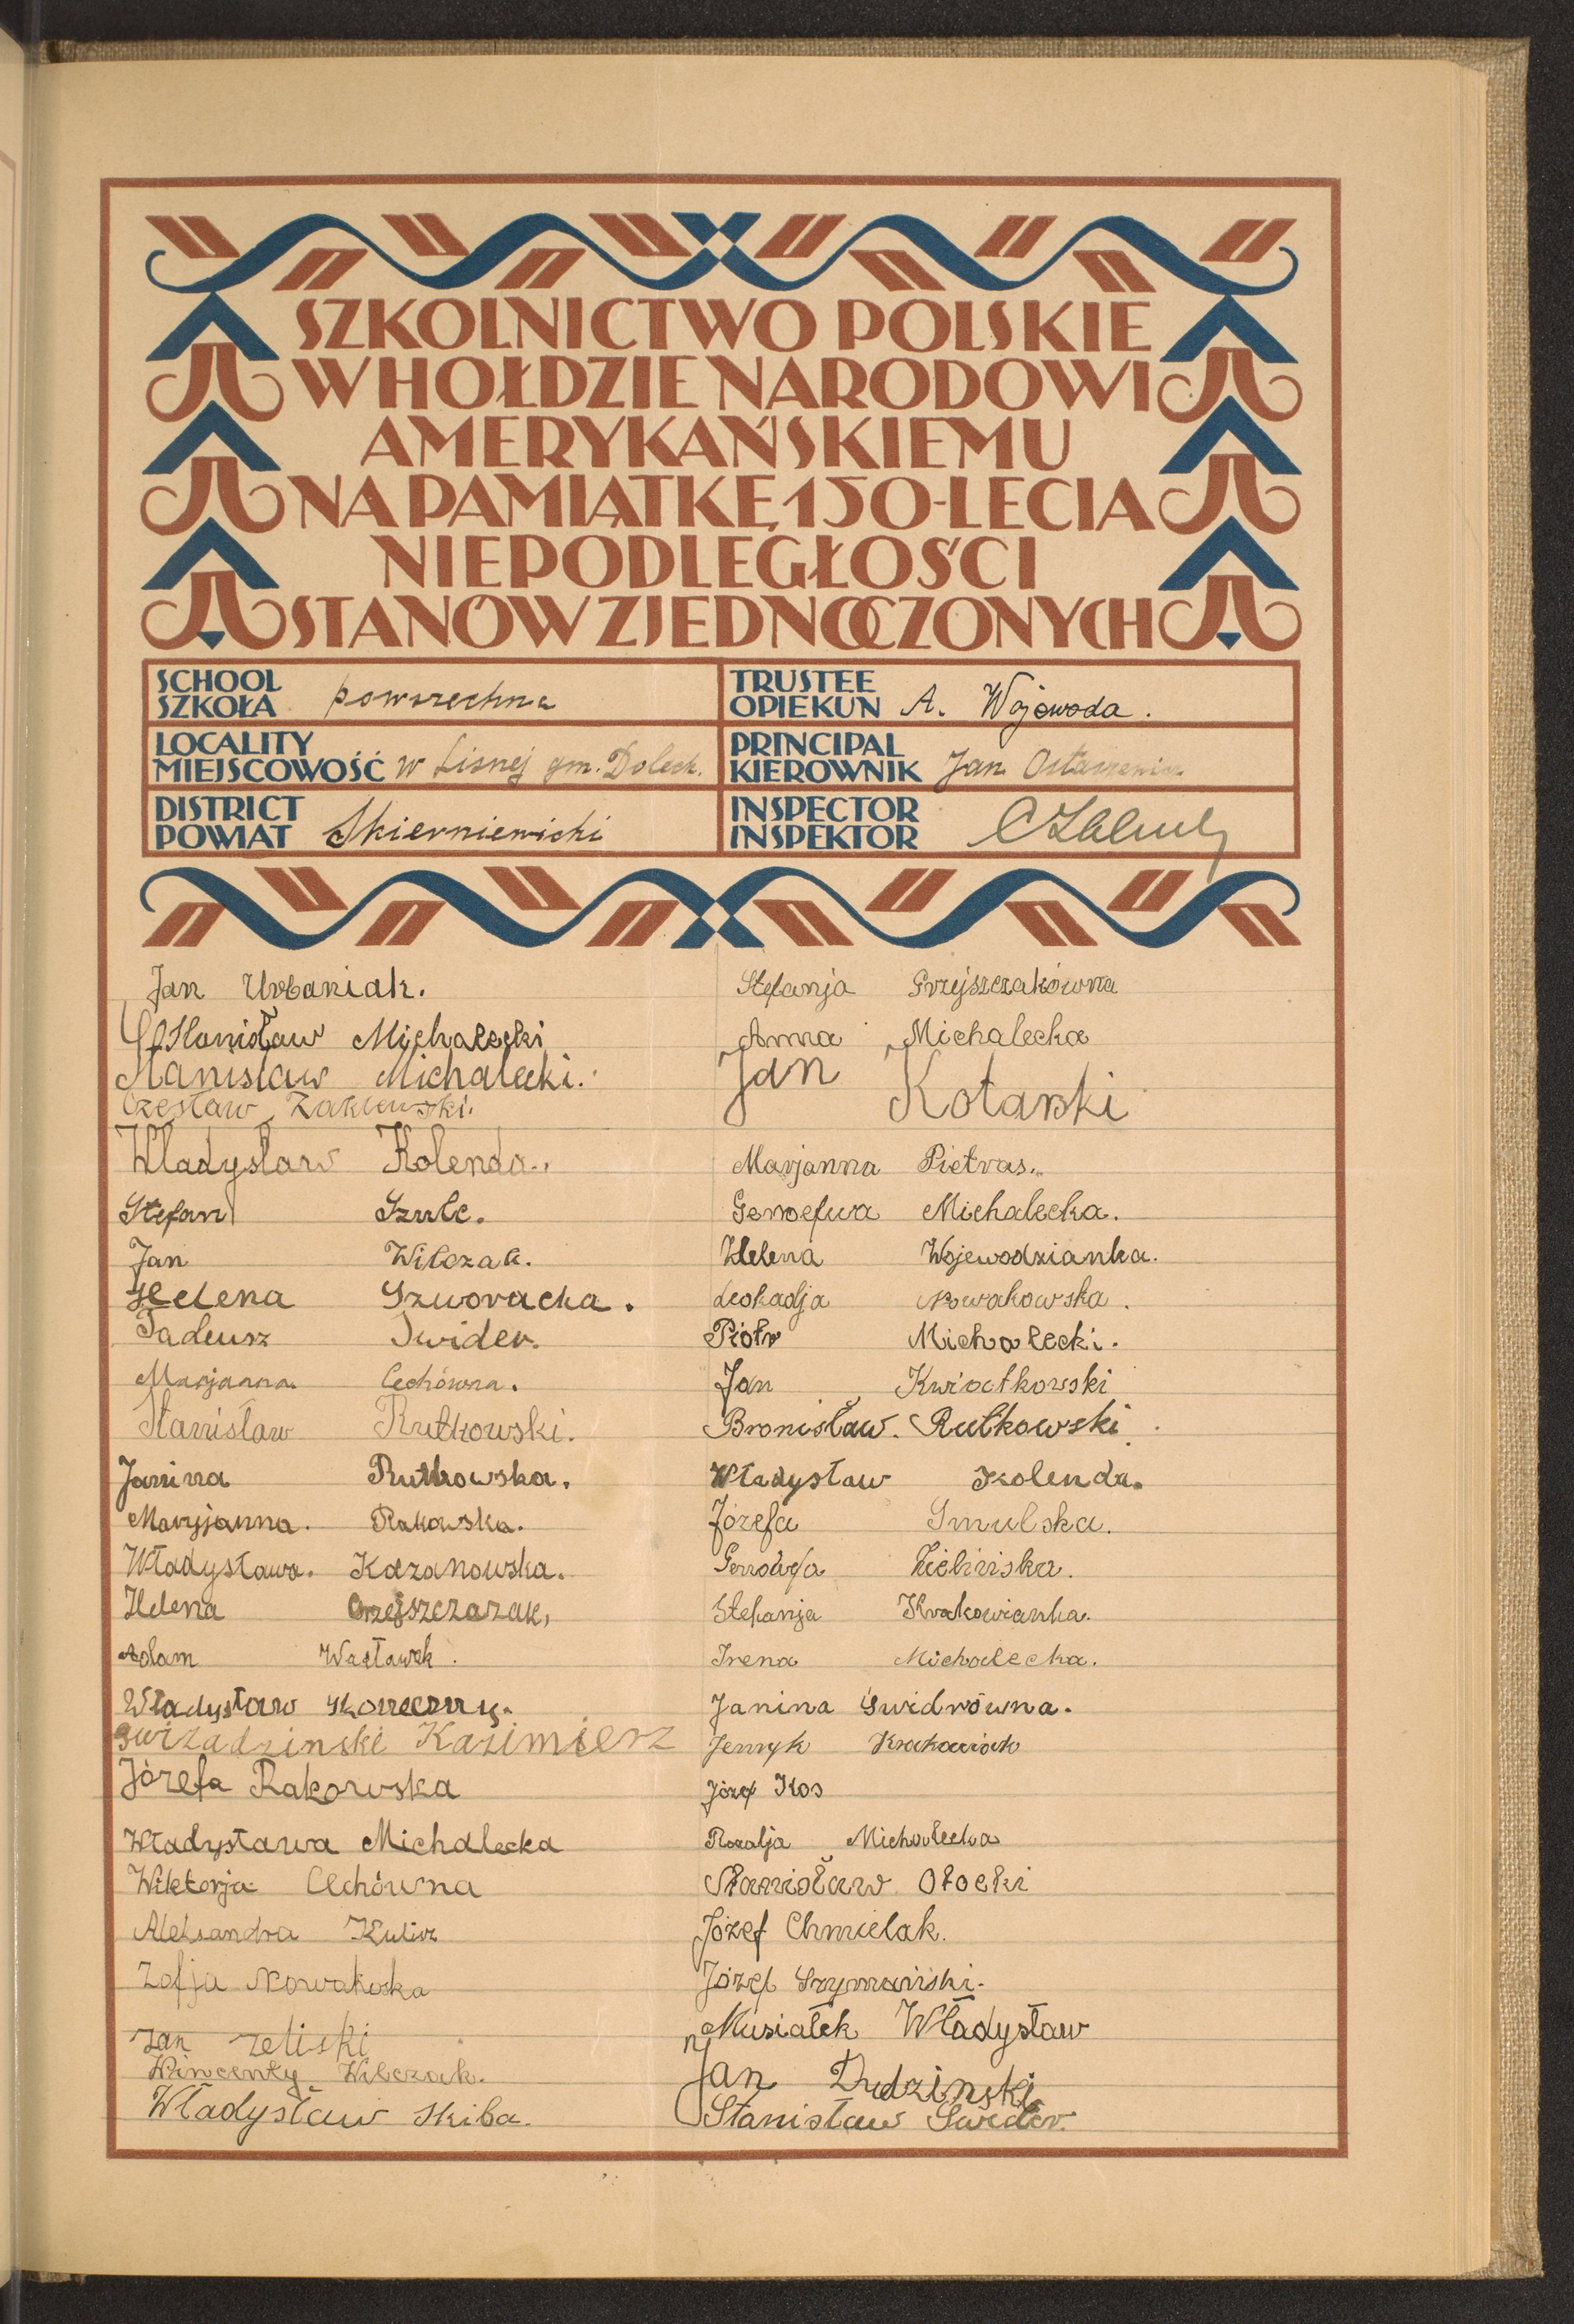 SZKOLNICTWO POLSKIE
W HOŁDZIE NARODOWI
AMERYKAŃSKIEMU
NA PAMIĄTKĘ 150-LECIA
NIEPODLEGŁOŚCI
STANÓW ZJEDNOCZONYCH
SCHOOL
SZKOŁA powszechna
TRUSTEE
OPIEKUN A. Wojewoda.
LOCALITY
MIEJSCOWOŚĆ w Lisnej gm. Doleck.
PRINCIPAL
KIEROWNIK Jan Ostaszewicz
DISTRICT
POWIAT Skierniewicki
INSPECTOR
INSPEKTOR
Jan Urbaniak.
Stanisław Michalecki
Stanisław Michalecki.
Czesław Zaklewski.
Władysław Kolenda.
Stefan Szulc.
Jan Wilczak.
Helena Szworacka.
Tadeusz Swider.
Marjanna Cechówna.
Stanisław Rutkowski.
Janina Rutkowska.
Maryjanna. Rakowska.
Władysława. Kazanowska.
Helena Grzejszczazak,
Adam Wacławek.
Władysław Skonieczny.
Gwizadzinski Kazimierz
Józefa Rakowska
Władysława Michalecka
Wiktorja Cechówna
Aleksandra Kulis
Zofja Nowakoska
Jan Zeliski
Wincenty Wilczak.
Władysław Skiba.
Stefanja Grzejszczakówna
Anna Michalecka
Jan Kotarski
Marjanna Pietras.
Genoefwa Michalecka.
Helena Wojewodzianka.
Leokadja Nowakowska.
Piotr Michalecki.
Jan Kwiatkowski
Bronisław. Rutkowski
Władysław Kolenda.
Józefa Smulska.
Genowefa Zielińska.
Stefanja Krakowianka.
Irena Michalecka.
Janina Swidrówna.
Henryk Krakowiak
Józef Kos
Rozalja Michalecka
Stanisław Otocki
Józef Chmielak.
Józef Szymański.
Musiałek Władysław
Jan Dudzinski
Stanisław Swider.